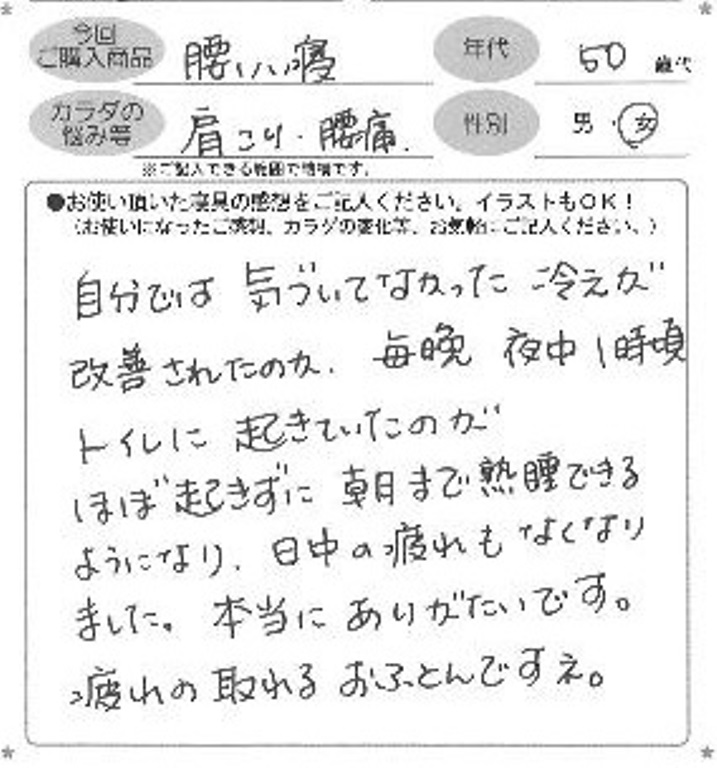 今回
ご購入商品
腰いい寝
年代
50 歳代
カラダの
悩み等
肩こり・腰痛.
性別
男・女
※ご記入できる範囲で結構です。
●お使い頂いた寝具の感想をご記入ください。イラストもOK!
(お使いになったご感想、カラダの変化等、お気軽にご記入ください。)
自分では 気づいてなかった 冷えが
改善されたのか、毎晩 夜中1時頃
トイレに 起きていたのが
ほぼ起きずに 朝まで熟睡できる
ようになり、日中の疲れもなくなり
ました。本当に ありがたいです。
疲れの取れる おふとんですネ。